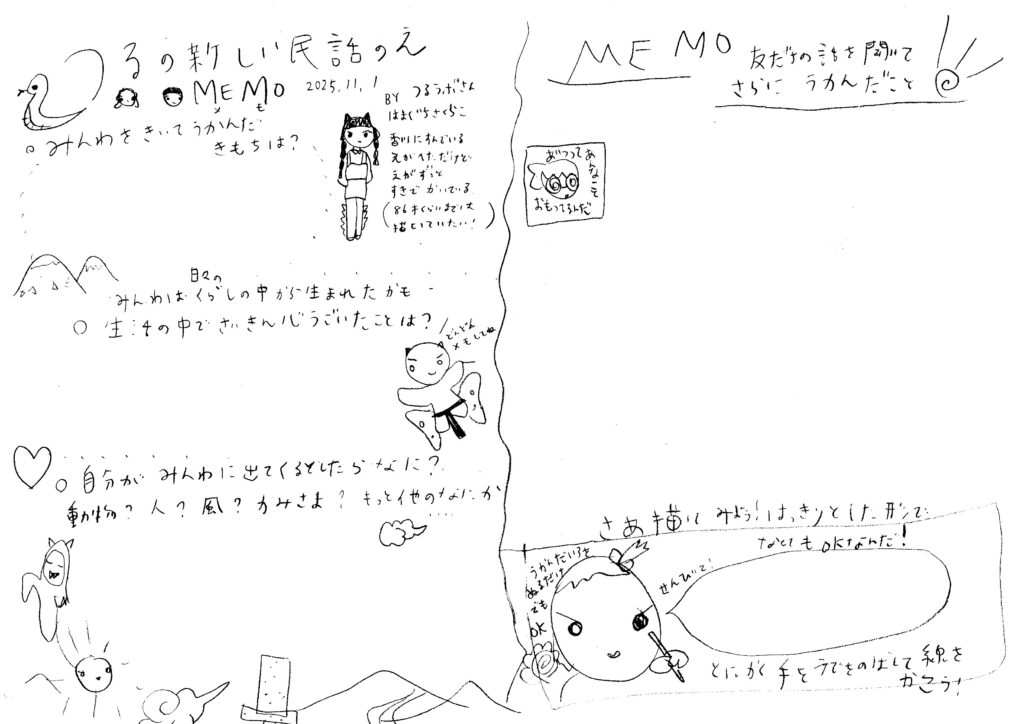 つるの新しい民話のえ
MEMO
メ モ
2025.11.1
BY つるうちさん
はまぐちさくらこ
香川にすんでいる
えがへただけど
えがずっと
すきでかいている
(86才くらいまでは
描いていたい！)
みんわをきいてうかんだ
きもちは？
日々の
みんわはくらしの中から生まれたかも…
生活の中でさいきん心うごいたことは？
どんどん
メモしてね
自分がみんわに出てくるとしたらなに？
動物？人？風？かみさま？もっと他のなにか
MEMO
友だちの話を聞いて
さらにうかんだこと
あいつってあ
んなこと
おもってるんだ
さあ描いてみよう！はっきりとした形で
なくてもOKなんだ！
うかんだいろを
ぬるだけ
でも
OK
せんびいて！
とにかく手をうでをのばして線を
かこう！